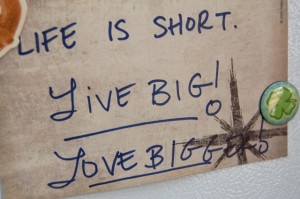 LIFE IS SHORT.
LIVE BIG!
LOVE BIGGER!